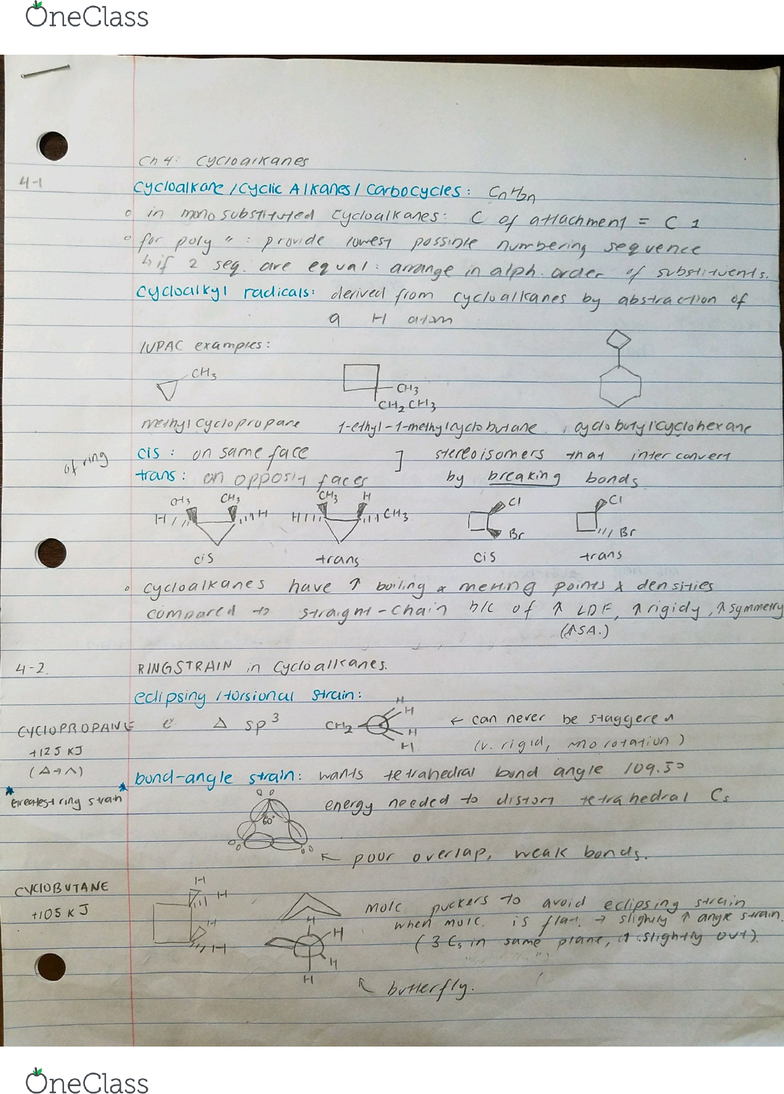 OneClass
Ch 4: Cycloalkanes
4-1
Cycloalkane / Cyclic Alkanes / Carbocycles: CnH2n
in monosubstituted cycloalkanes: C of attachment = C 1
for poly " : provide lowest possible numbering sequence
↳ if 2 seq. are equal: arrange in alph. order of substituents.
Cycloalkyl radicals: derived from cycloalkanes by abstraction of
a H atom
IUPAC examples:
CH3
CH3
CH2CH3
methylcyclopropane 1-ethyl-1-methylcyclobutane cyclobutylcyclohexane
of ring
cis: on same face ] stereoisomers that interconvert
trans: on opposit faces by breaking bonds
CH3 CH3 CH3 H Cl Cl
H H H CH3 Br Br
cis trans cis trans
cycloalkanes have ↑ boiling & melting points & densities
compared to straight-chain b/c of ↑ LDF, ↑ rigidy, ↑ symmetry
(↑SA.)
4-2
RINGSTRAIN in Cycloalkanes.
eclipsing / torsional strain:
CYCLOPROPANE
+125 KJ
(Δ→Λ)
Δ sp3
CH2 H H H H
← can never be staggered
(v. rigid, no rotation)
* Greatest ring strain *
bond-angle strain: wants tetrahedral bond angle 109.5°
energy needed to distort tetrahedral Cs
60°
poor overlap, weak bonds.
CYCLOBUTANE
+105 KJ
H H H H
H H H H
molc puckers to avoid eclipsing strain
when molc. is flat. → slightly ↑ angle strain.
(3 Cs in same plane, 1 slightly out).
butterfly.
OneClass